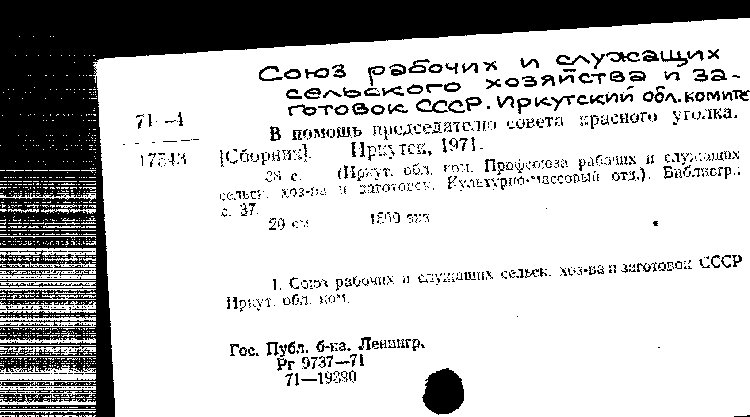 Союз рабочих и служащих
сельского хозяйства и за-
готовок СССР. Иркутский обл. комите
71-4
В помощь председателю совета красного уголка.
17543
[Сборник]. Иркутск, 1971.
38 с. (Иркут. обл. ком. Профсоюза рабочих и служащих
сельск. хоз-ва и заготовок. Культурно-массовый отд.). Библиогр.:
с. 37.
20 см 1500 экз
1. Союз рабочих и служащих сельск. хоз-ва и заготовок СССР
Иркут. обл. ком.
Гос. Публ. б-ка. Ленингр.
Рг 9737—71
71—19390